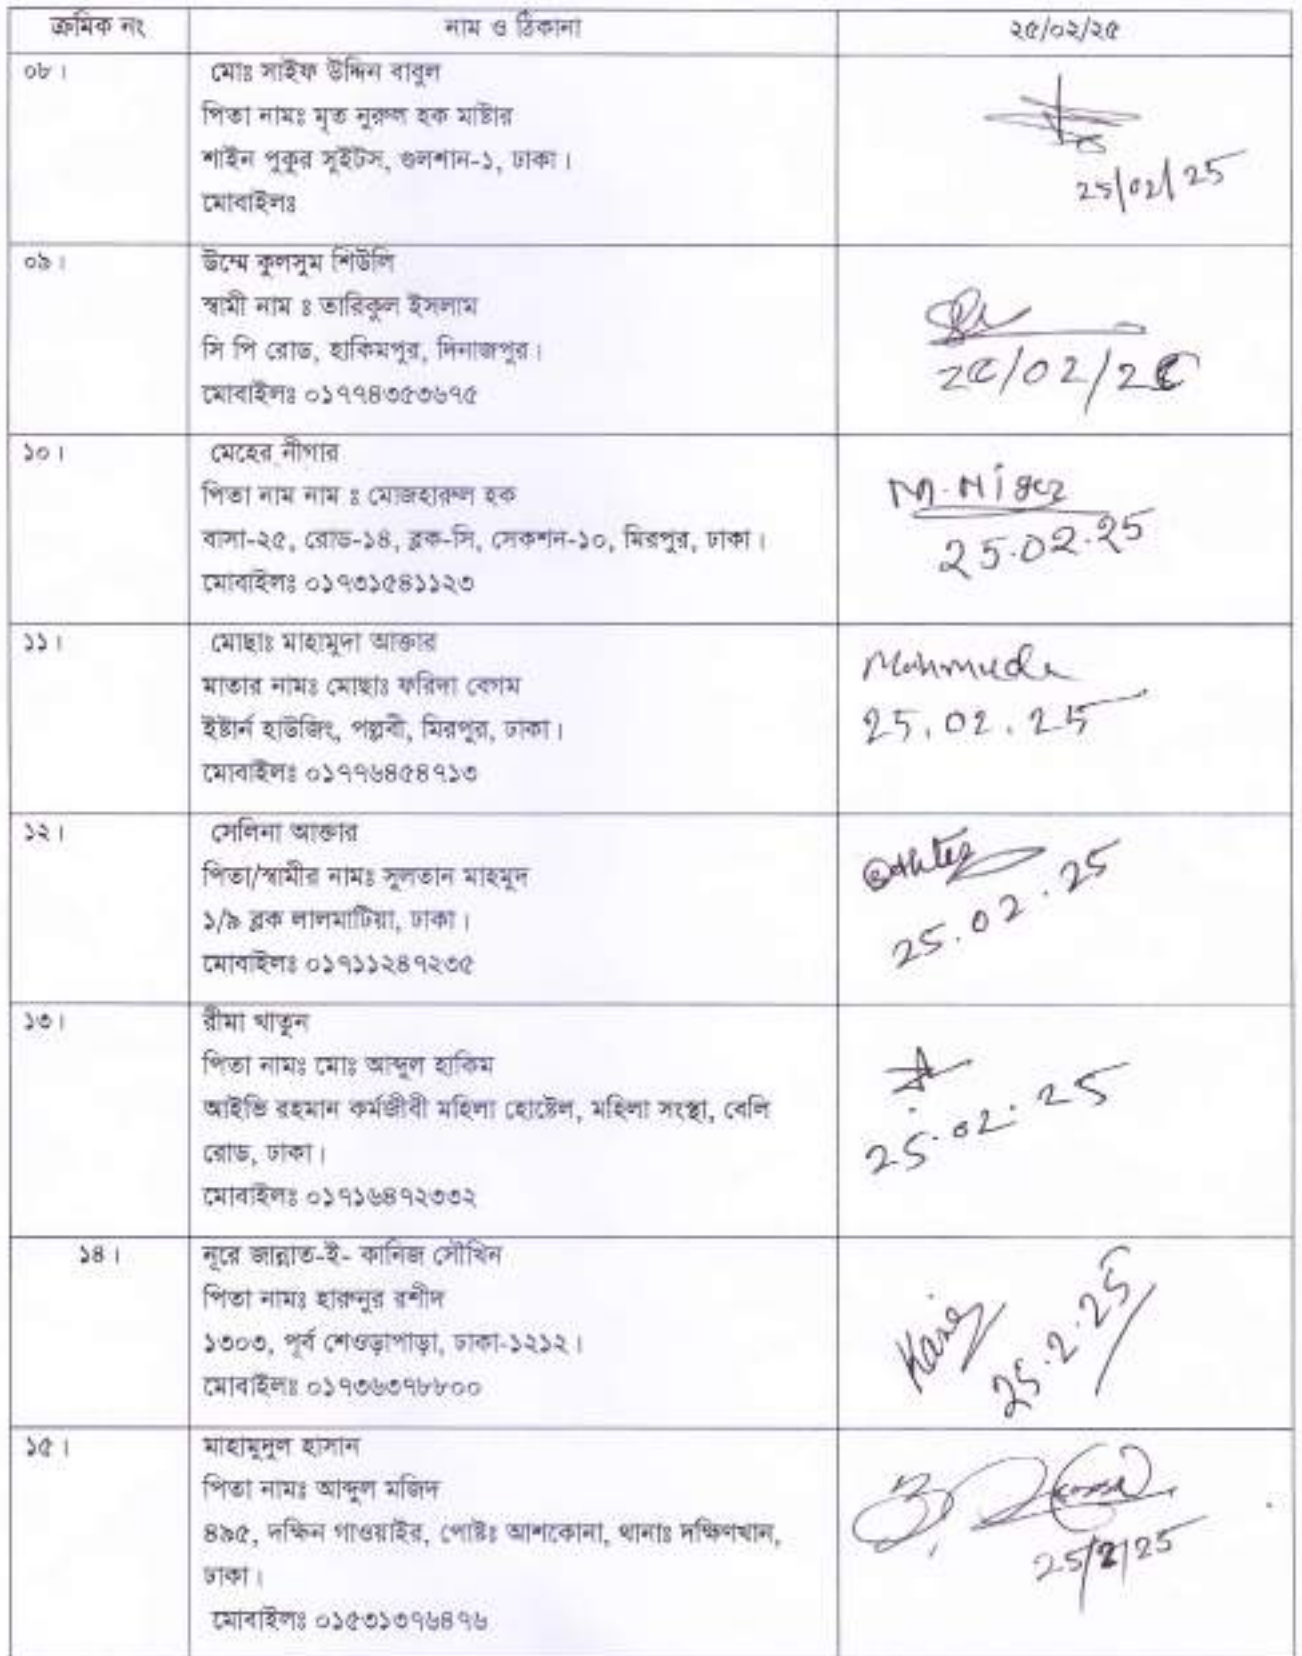 ক্রমিক নং নাম ও ঠিকানা ২৫/০২/২৫
০৮। মোঃ সাইফ উদ্দিন বাবুল
পিতা নামঃ মৃত নুরুল হক মাষ্টার
শাইন পুকুর সুইটস, গুলশান-১, ঢাকা।
মোবাইলঃ
25/02/25
০৯। উম্মে কুলসুম শিউলি
স্বামী নাম ঃ তারিকুল ইসলাম
সি পি রোড, হাকিমপুর, দিনাজপুর।
মোবাইলঃ ০১৭৭৪৩৫৩৬৭৫
2৫/02/2৫
১০। মেহের নীগার
পিতা নাম নাম ঃ মোজহারুল হক
বাসা-২৫, রোড-১৪, ব্লক-সি, সেকশন-১০, মিরপুর, ঢাকা।
মোবাইলঃ ০১৭৩১৫৪১১২৩
M.Nigar
25.02.25
১১। মোছাঃ মাহামুদা আক্তার
মাতার নামঃ মোছাঃ ফরিদা বেগম
ইষ্টার্ন হাউজিং, পল্লবী, মিরপুর, ঢাকা।
মোবাইলঃ ০১৭৭৬৪৫৪৭১৩
Mahmuda
25.02.25
১২। সেলিনা আক্তার
পিতা/স্বামীর নামঃ সুলতান মাহমুদ
১/৯ ব্লক লালমাটিয়া, ঢাকা।
মোবাইলঃ ০১৭১১২৪৭২৩৫
25.02.25
১৩। রীমা খাতুন
পিতা নামঃ মোঃ আব্দুল হাকিম
আইভি রহমান কর্মজীবী মহিলা হোষ্টেল, মহিলা সংস্থা, বেলি
রোড, ঢাকা।
মোবাইলঃ ০১৭১৬৪৭২৩৩২
25.02.25
১৪। নূরে জান্নাত-ই- কানিজ সৌখিন
পিতা নামঃ হারুনুর রশীদ
১৩০৩, পূর্ব শেওড়াপাড়া, ঢাকা-১২১২।
মোবাইলঃ ০১৭৩৬৩৭৮৮০০
Kaniz
25.2.25
১৫। মাহামুদুল হাসান
পিতা নামঃ আব্দুল মজিদ
৪৯৫, দক্ষিন গাওয়াইর, পোষ্টঃ আশকোনা, থানাঃ দক্ষিণখান,
ঢাকা।
মোবাইলঃ ০১৫৩১৩৭৬৪৭৬
25/2/25